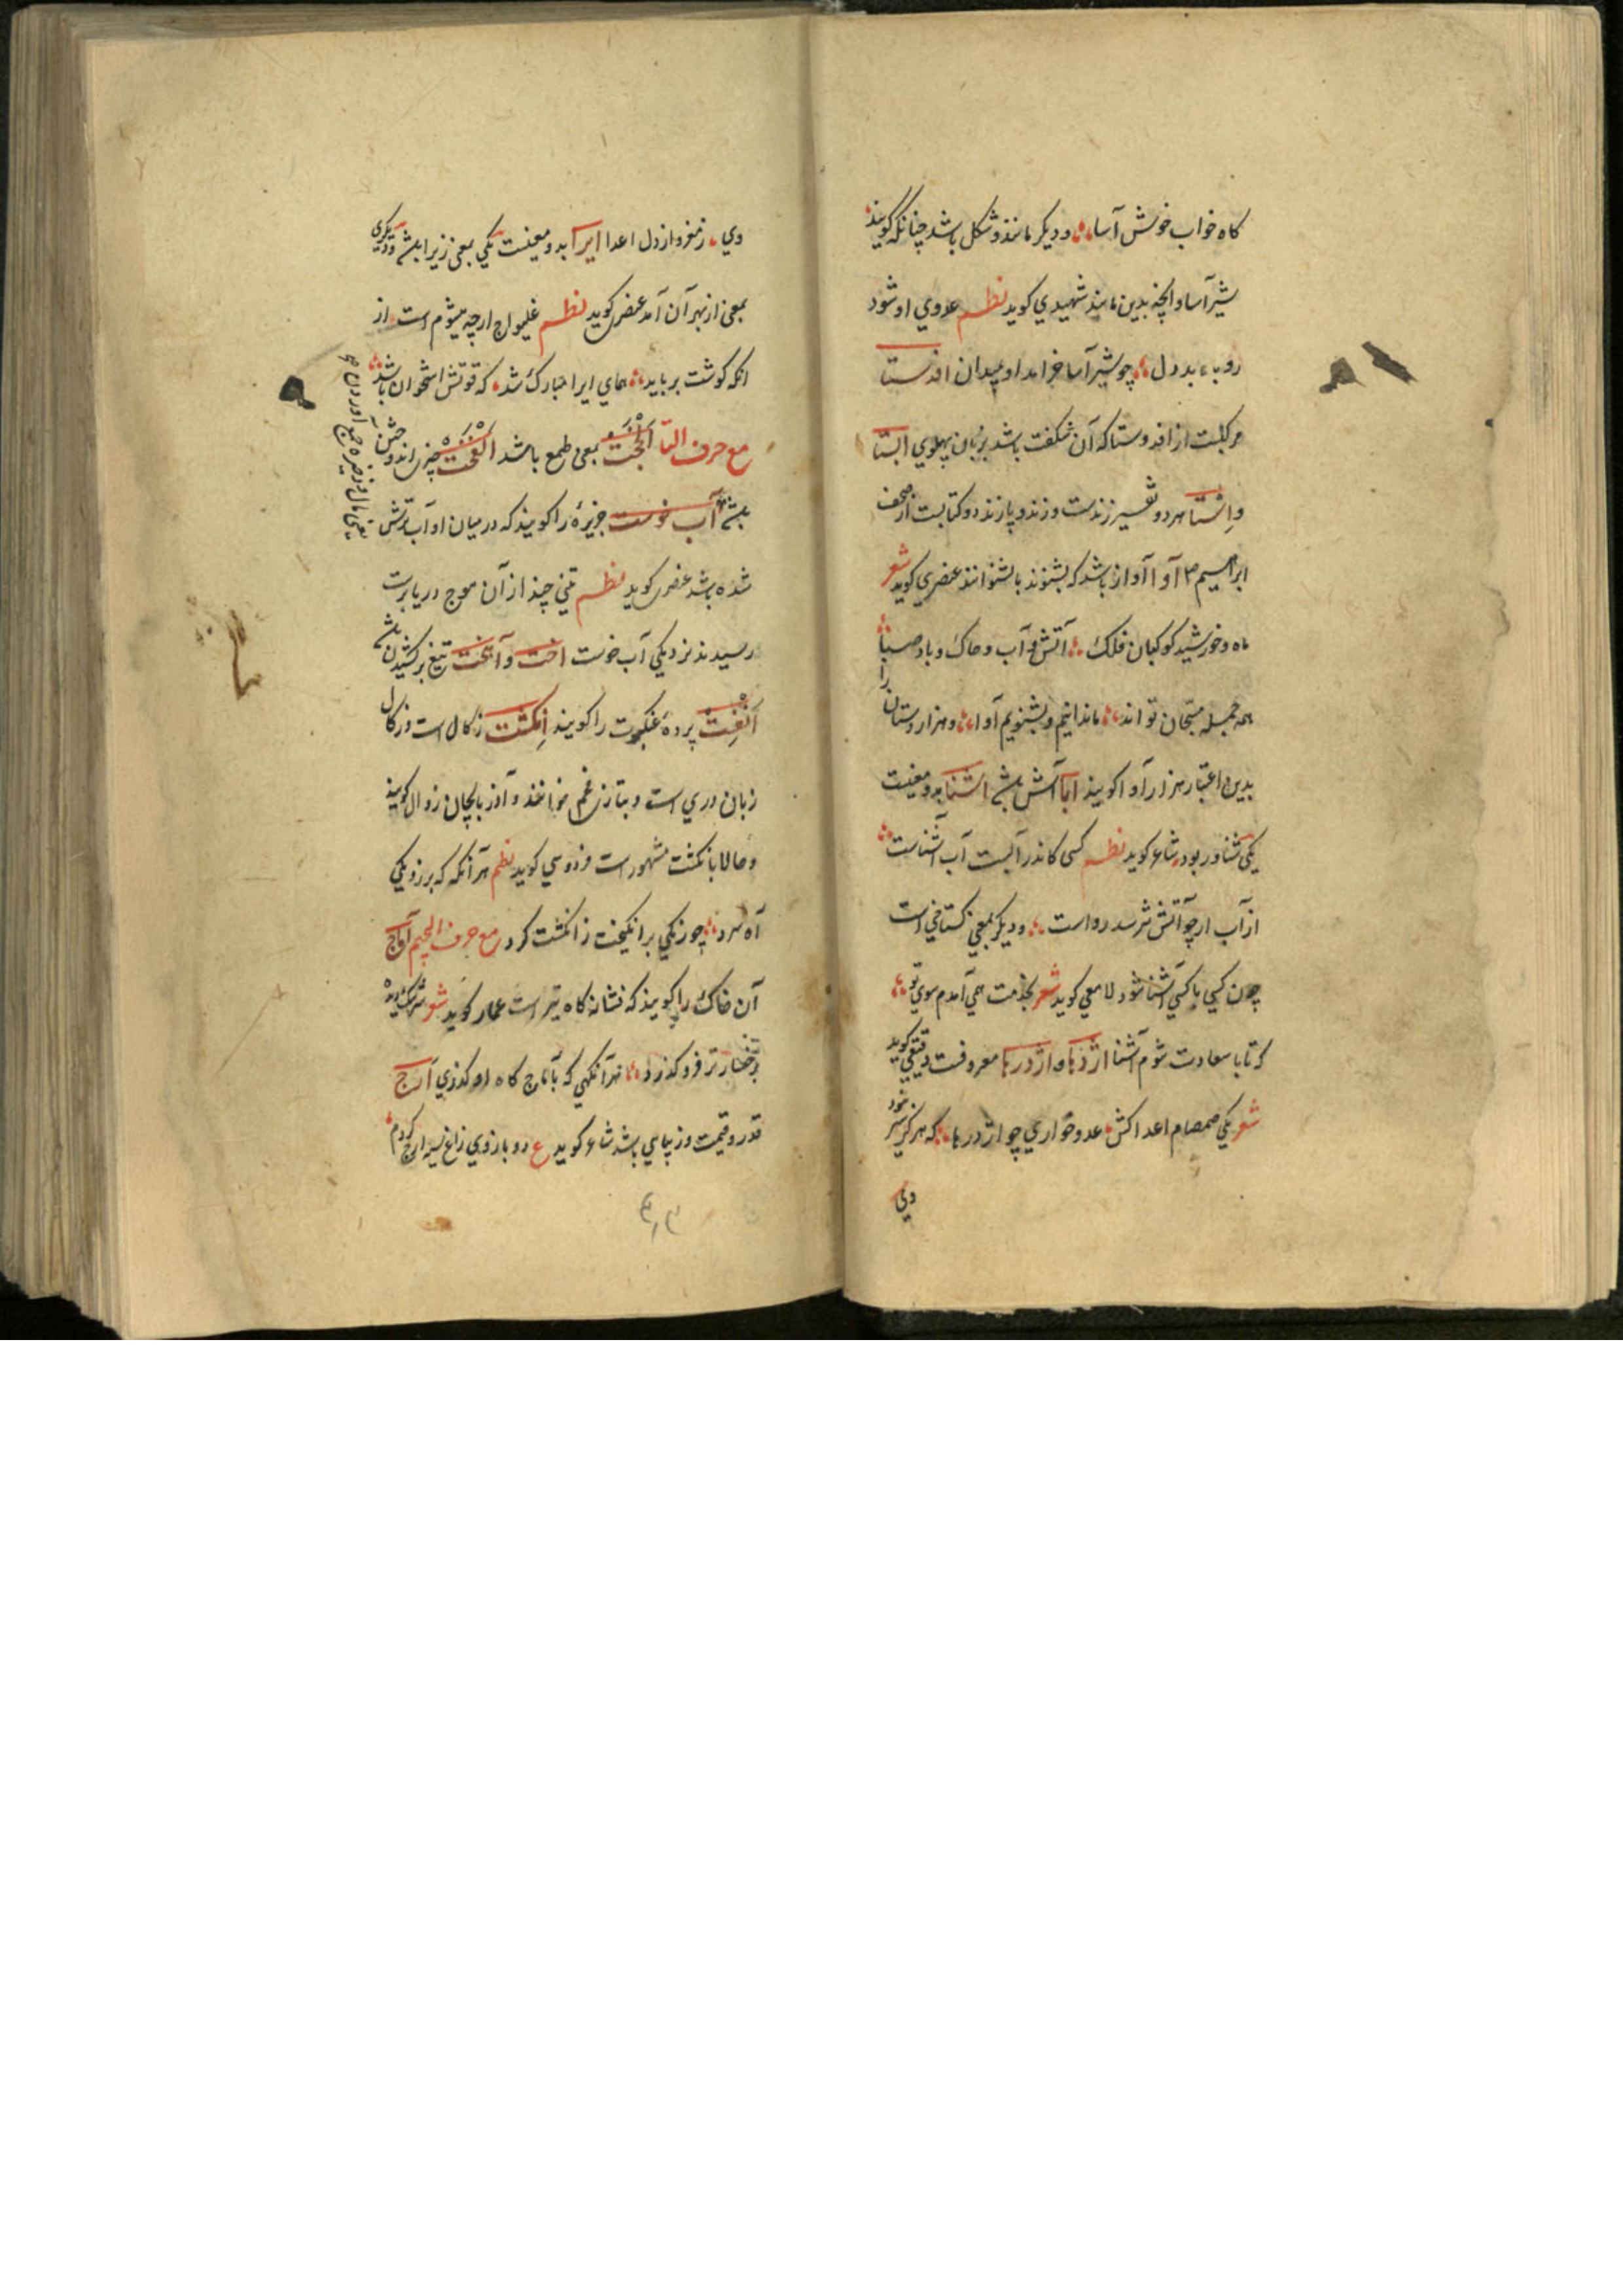 کاه خواب خوش آسا ودیکر مانند و شکل باشد چنانکه کویند
شیرآسا وانچه بدین ماند شهیدی کوید نظم عدوی او شود
روباه بددل چو شیرآسا خرامد او بمیدان افدستا
مرکبست از افد وستا که آن شکفت باشد بزبان پهلوی ابستا
واستا هر دو تفسیر زندست وزند و پازند دو کتابست از صحف
ابراهیم آوا آواز باشد که بشنوند یا بشنوانند عنصری کوید شعر
ماه و خورشید کوکبان فلک آتش و آب و خاک و باد صبا
همه جمله مسبحان تواند ما ندانیم و بشنویم آوا و هزاردستان را
بدین اعتبار هزارآوا کویند ابا آش باشد اشنا بدو معنیست
یکی شناور بود شاعر کوید نظم کسی کاندر آبست آب آشناست
از آب ار چو آتش نترسد رواست ودیکر بمعنی کستاخی است
چون کسی با کسی آشنا شود لامعی کوید شعر بخدمت همی آمدم سوی تو
که تا با سعادت شوم آشنا اژدها و اژدرها معروفست دقیقی کوید
شعر یکی صمصام اعداکش عدوخواری چو اژدرها که هرکز سیر نبود
وی
وی ز مغز و از دل اعدا ایرا بدو معنیست یکی بمعنی زیرا باشد ودیکری
بمعنی از بهر آن آمد عنصری کوید نظم غلیواج ارچه میشوم است از
انکه کوشت برباید همای ایرا مبارک شد که قوتش استخوان باشد
مع حرف التا الجخت بمعنی طمع باشد الفخت چیزی اندوختن
باشد آب خوست جزیره را کویند که در میان او آب ترش
شده باشد عنصری کوید نظم تنی چند از آن موج دریا برست
رسیدند نزدیکی آب خوست اخت و آهخت تیغ برکشیدن باشد
انفست پرده عنکبوت را کویند انکشت زکال است و زکال
زبان دری است و بتازی فحم خوانند و آذربایجان زوال کویند
وحالا بانکشت مشهور است فردوسی کوید نظم هر آنکه که برزد یکی
آه سرد چو زنکی برانکیخت ز انکشت کرد مع حرف الجیم آماج
آن خاک را کویند که نشانه کاه تیر است عمار کوید شعر
بر رخسار تر فروکذرد هر آنکهی که بآماج کاه او کذری ارج
قدر و قیمت وزیبایی باشد شاعر کوید ع دو بازوی زاغ سیه ارج کردم
یعنی مال و ذخیره جمع آوردن